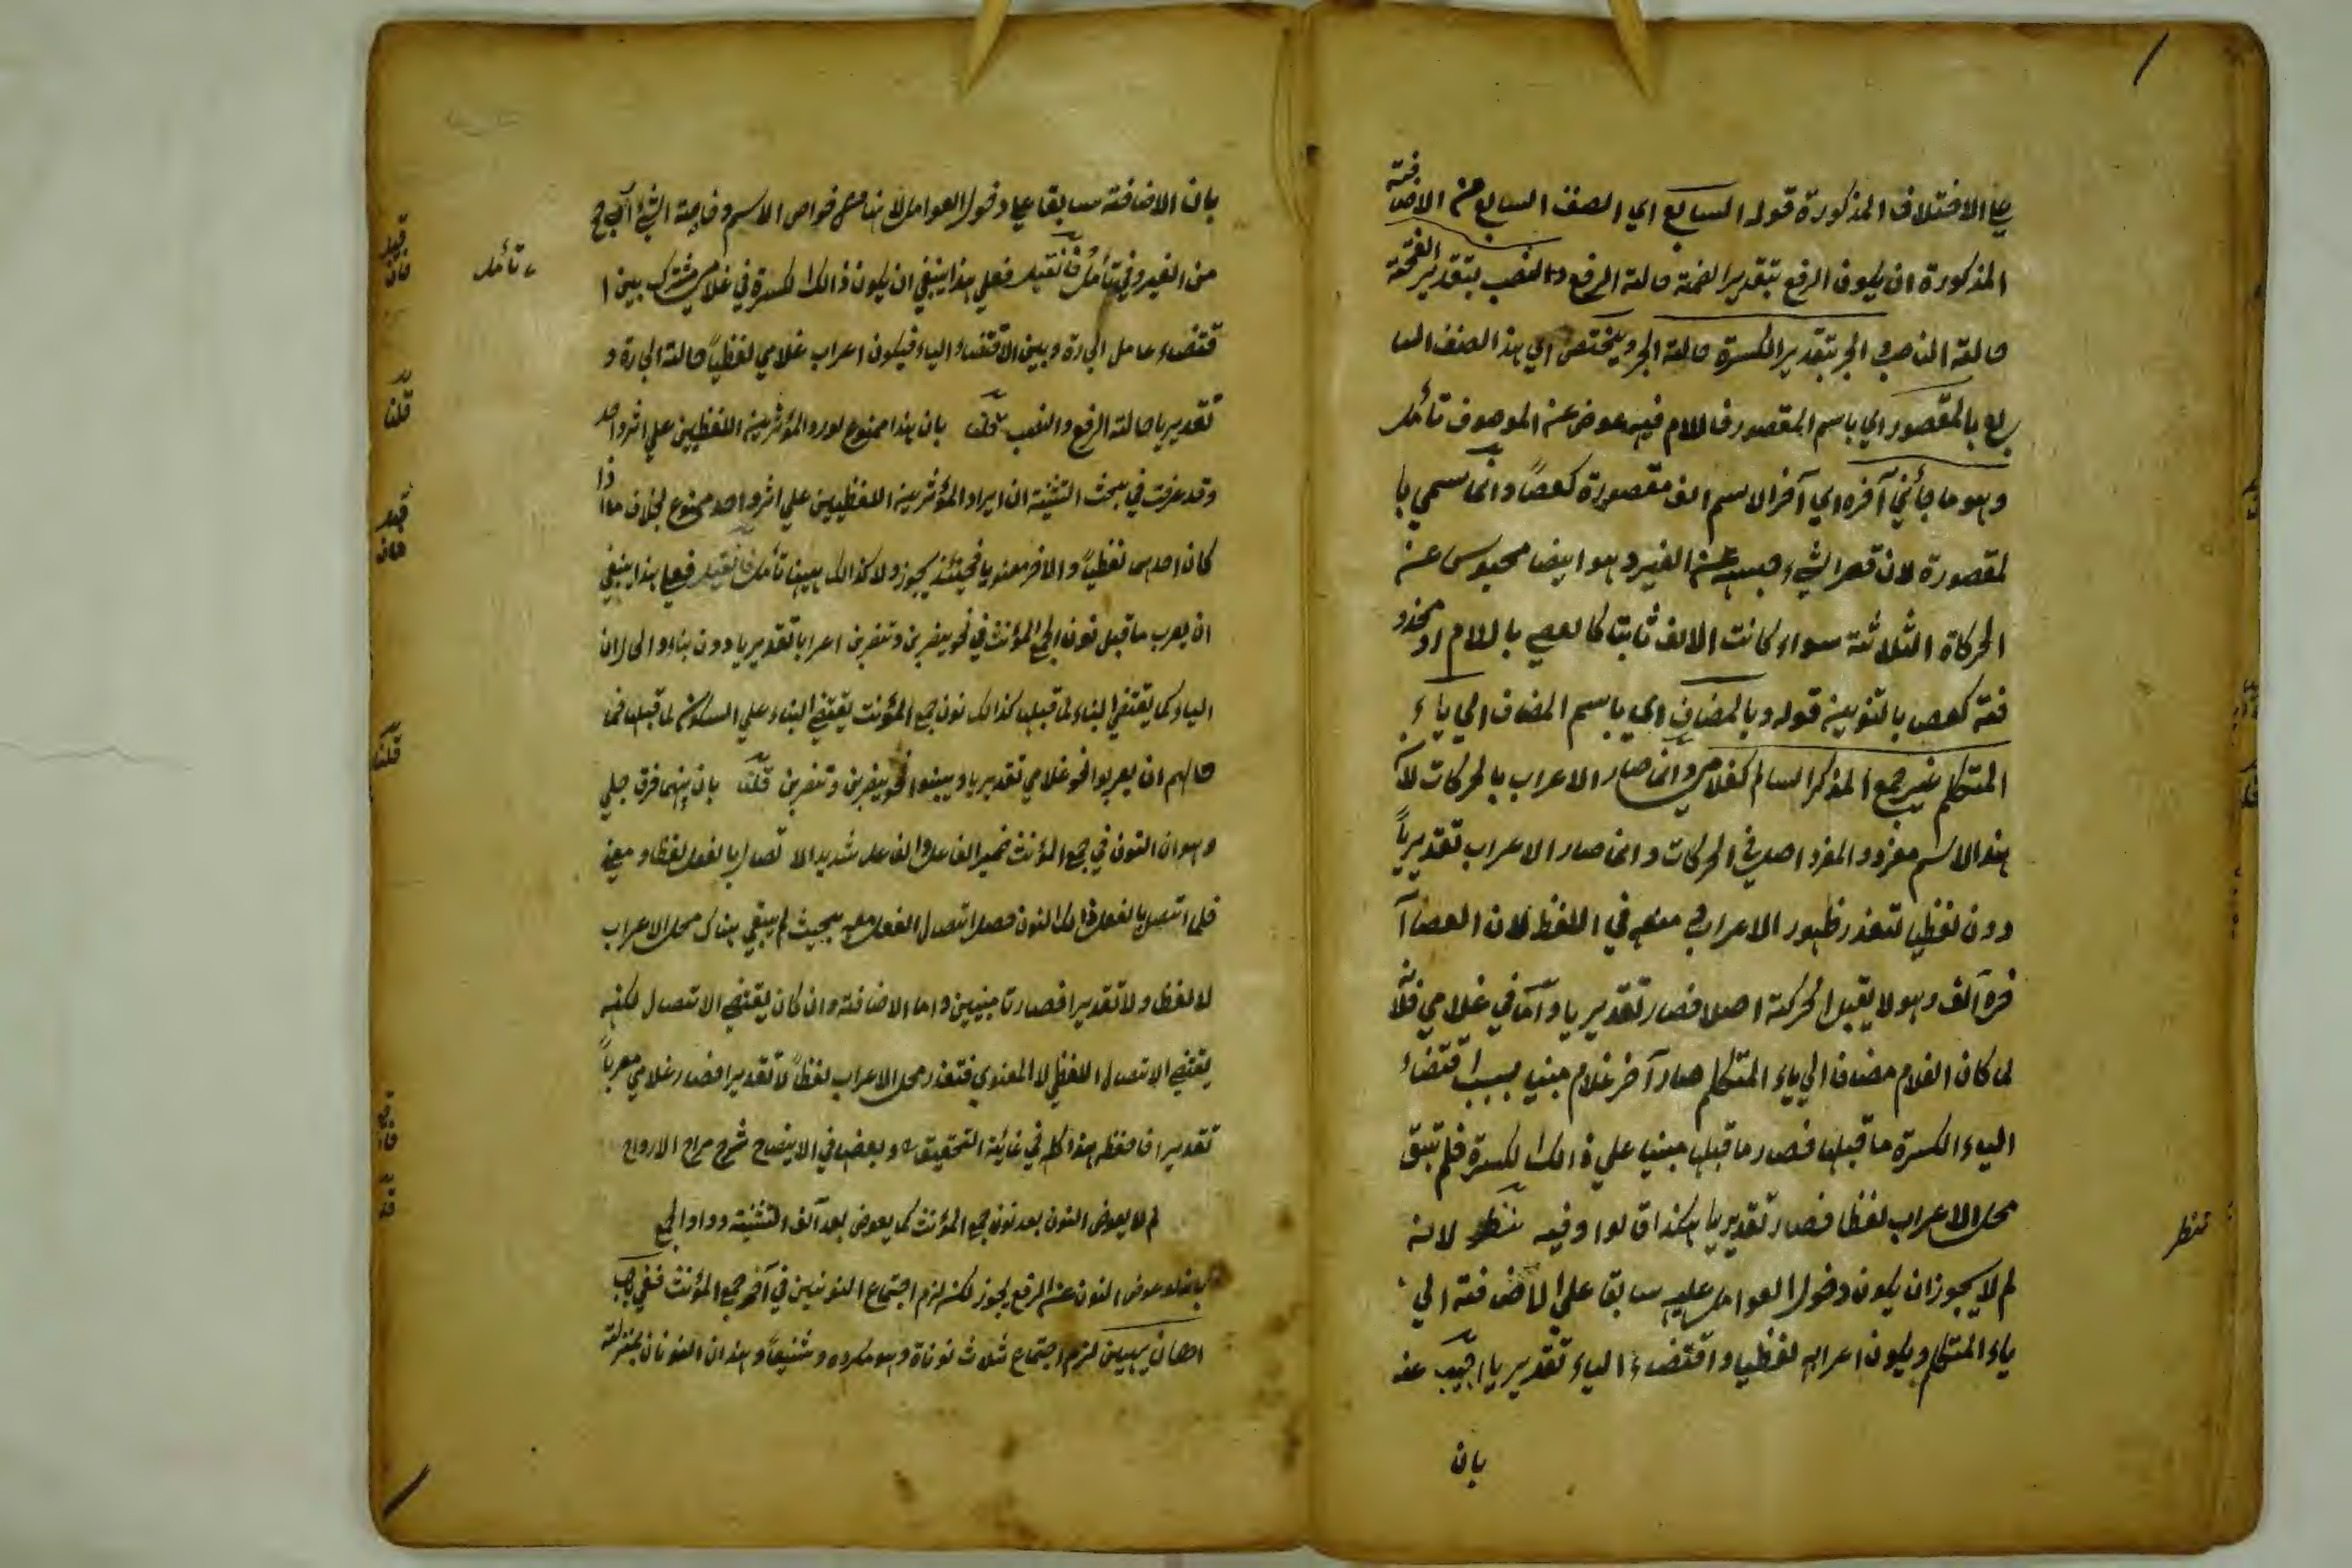 الاختلاف المذكورة قوله السابع اي الصنف السابع من الاصنا
فته
المذكورة ان يكون الرفع بتقدير الضمة حالة الرفع والنصب بتقدير الفتحة
حالة النصب والجر بتقدير الكسرة حالة الجر ويختص اي هذا الصنف السا
بع بالمقصور اي باسم المقصور فاللام فيه عوض عن الموصوف تأمل
وهو ما في آخره اي آخر الاسم الف مقصورة كعصًا وانما سمي با
لمقصورة لان قصر الشيء حبسه عن الغير وهو ايضا محبوس عن
الحركاة الثلاثة سواء كانت الالف ثابتا كالعصي باللام او محذو
فة كعص بالتنوين قوله وبالمضاف اي باسم المضاف الي ياء
المتكلم غير جمع المذكر السالم كغلامي وانما صار الاعراب بالحركات لان
هذا الاسم مفرد والمفرد اصل في الحركات وانما صار الاعراب تقديرياً
دون لفظيا لتعذر ظهور الاعراب في اللفظ لان العصا آ
خره آلف وهو لا يقبل الحركة اصلا فصار تقديريا وآما في غلامي فلانه
لما كان الغلام مضاف الي ياء المتكلم صار آخر غلام مبنيا بسبب اقتضاء
الياء الكسرة ما قبلها فصار ما قبلها مبنيا علي ذالك الكسرة فلم تبق
محل الاعراب لفظا فصار تقديريا هكذا قالوا وفيه نظر لانه
لم لا يجوز ان يكون دخول العوامل عليه سابقا علي الاضافة الي
ياء المتكلم ويكون اعرابه لفظيا واقتضاء الياء تقديريا اجيب عنه
بان
تنظر
بان الاضافة سابقا علي دخول العوامل لانها من خواص الاسم وخاصة الشيء
من الغير وفيه تأمل فان قيل فعلي هذا ينبغي ان يكون ذالك الكسرة في غلامي مشترك بين ا
قتضاء عامل الجارة وبين الاقتضاء الياء فيكون اعراب غلامي لفظياً حالة الجارة و
تقديريا حالة الرفع والنصب قلنا بان هذا ممنوع لورود المؤثرين اللفظيين علي اثر واحد
وقد عرفت في بحث التثنية ان ايراد المؤثرين اللفظيين علي اثر واحد ممنوع بخلاف ما اذا
كان احدهما لفظياً والاخر معنويا فحينئذ يجوز ولا كذالك ههنا تأمل فان قيل فعلي هذا ينبغي
ان يعرب ما قبل نون الجمع المؤنث في نحو يضربن وتضربن اعرابا تقديريا دون بناء والحال ان
الياء كما يقتضي البناء لما قبلها كذالك نون جمع المؤنث يقتضي البناء علي السكون لما قبلها فما
حالهم ان يعربوا نحو غلامي تقديريا ويبنوا نحو يضربن وتضربن قلنا بان بينهما فرق جلي
وهو ان النون في جمع المؤنث ضمير الفاعل والفاعل شديد الاتصال بالفعل لفظا ومعني
فلما اتصل بالفعل ذالك النون حصل اتصال الفعل معه بحيث لم يبقي هناك محل الاعراب
لا لفظا ولا تقديرا فصارتا مبنيين واما الاضافة وان كان يقتضي الاتصال لكنه
يقتضي الاتصال اللفظي لا المعنوي فتعذر محل الاعراب لفظاً لا تقديرا فصار غلامي معرباً
تقديرا فاحفظ هذا كله في غاية التحقيق وبعض في الايضاح شرح مراح الارواح
لم لا يعوض النون بعد نون جمع المؤنث كما يعوض بعد آلف التثنية وواو الجمع
عوض النون عن الرفع يجوز لكنه لزم اجتماع النونين في آخر جمع المؤنث ففي
لزم اجتماع ثلاث نوناة وهو مكروه وشنيعاً وهذان النونان بمنزلة
تأمل
قيل
فان
قلنا
قيل
فان
قلنا